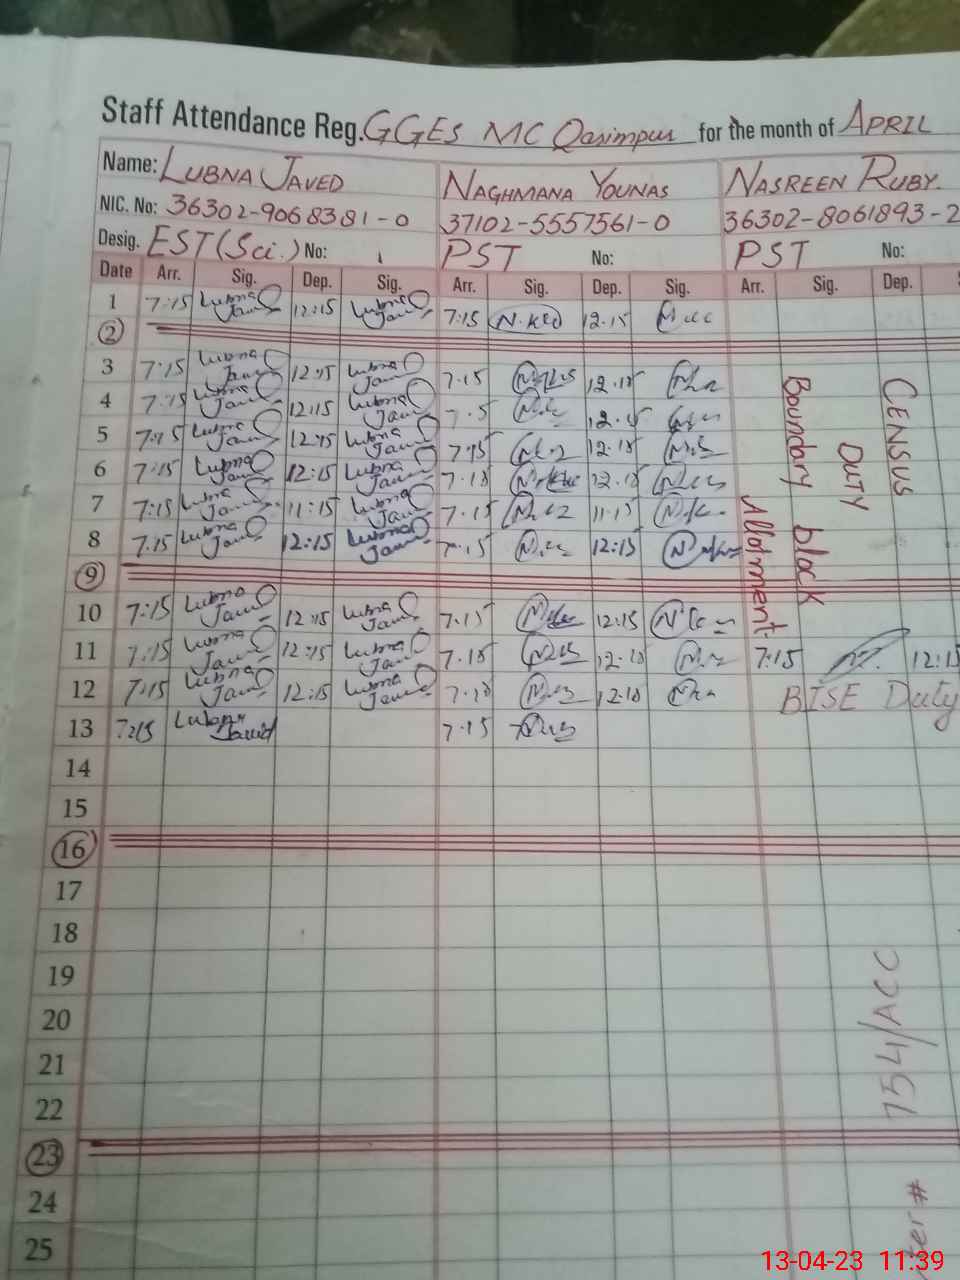 Staff Attendance Reg. GGES MC Qasimpur for the month of APRIL
Name: LUBNA JAVED NAGHMANA YOUNAS NASREEN RUBY.
NIC. No: 36302-9068381-0 37102-5557561-0 36302-8061893-2
Desig. EST (Sci.) No: PST No: PST No:
Date Arr. Sig. Dep. Sig. Arr. Sig. Dep. Sig. Arr. Sig. Dep.
1 7:15 Lubna Javed 12:15 Lubna Javed 7:15 12.15
2
3 7:15 Lubna Javed 12:15 Lubna Javed 7.15 12.15
4 7:15 Lubna Javed 12:15 Lubna Javed 12.15
5 7:15 Lubna Javed 12:15 Lubna Javed 7:15 12:15
6 7:15 Lubna Javed 12:15 Lubna Javed 7.15 12.15
7 7:15 Lubna Javed 11:15 Lubna Javed 7.15 11.15
8 7.15 Lubna Javed 12:15 Lubna Javed 7.15 12:15
CENSUS
DUTY
Boundary block
Allotment.
9
10 7:15 Lubna Javed 12:15 Lubna Javed 7.15 12:15
11 7:15 Lubna Javed 12:15 Lubna Javed 7.15 12.15 7:15 12:15
12 7:15 Lubna Javed 12:15 Lubna Javed 7.15 12.15 BISE Duty
13 7:15 Lubna Javed 7.15
14
15
16
17
18
19
20
21
22
23
24
25
754/ACC
#
13-04-23 11:39